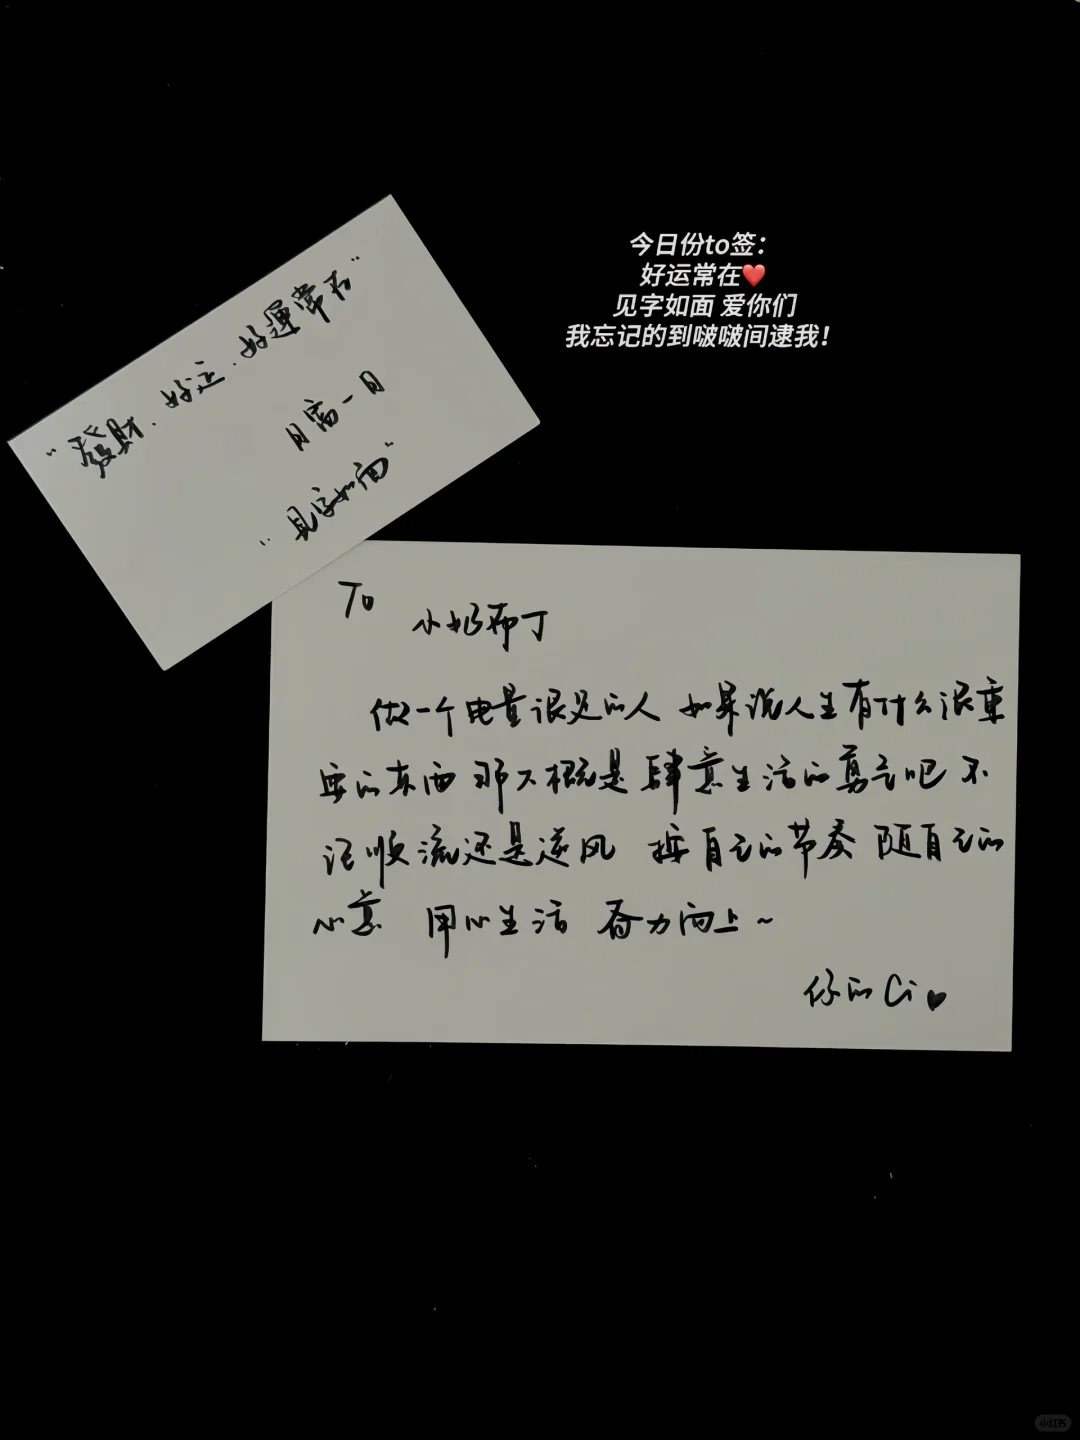 今日份to签：
好运常在❤️
见字如面 爱你们
我忘记的到啵啵间逮我！
“發財.好运.好運常在”
日富一日
“見字如面”
To
小奶布丁
做一个电量很足的人 如果说人生有什么很重
要的东西 那大概是肆意生活的勇气吧 不
论顺流还是逆风 按自己的节奏 随自己的
心意 用心生活 奋力向上~
你的Ci♥
小红书